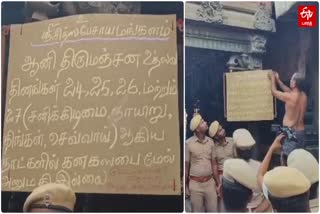 ஆனி திருமஞ்சன உற்சவ
தினங்கள் 24, 25, 26, மற்றும்
27 (சனிக்கிழமை, ஞாயிறு,
திங்கள், செவ்வாய்) ஆகிய
நாட்களில் கனகசபை மேல
அனுமதி இல்லை
ETV
BHARAT